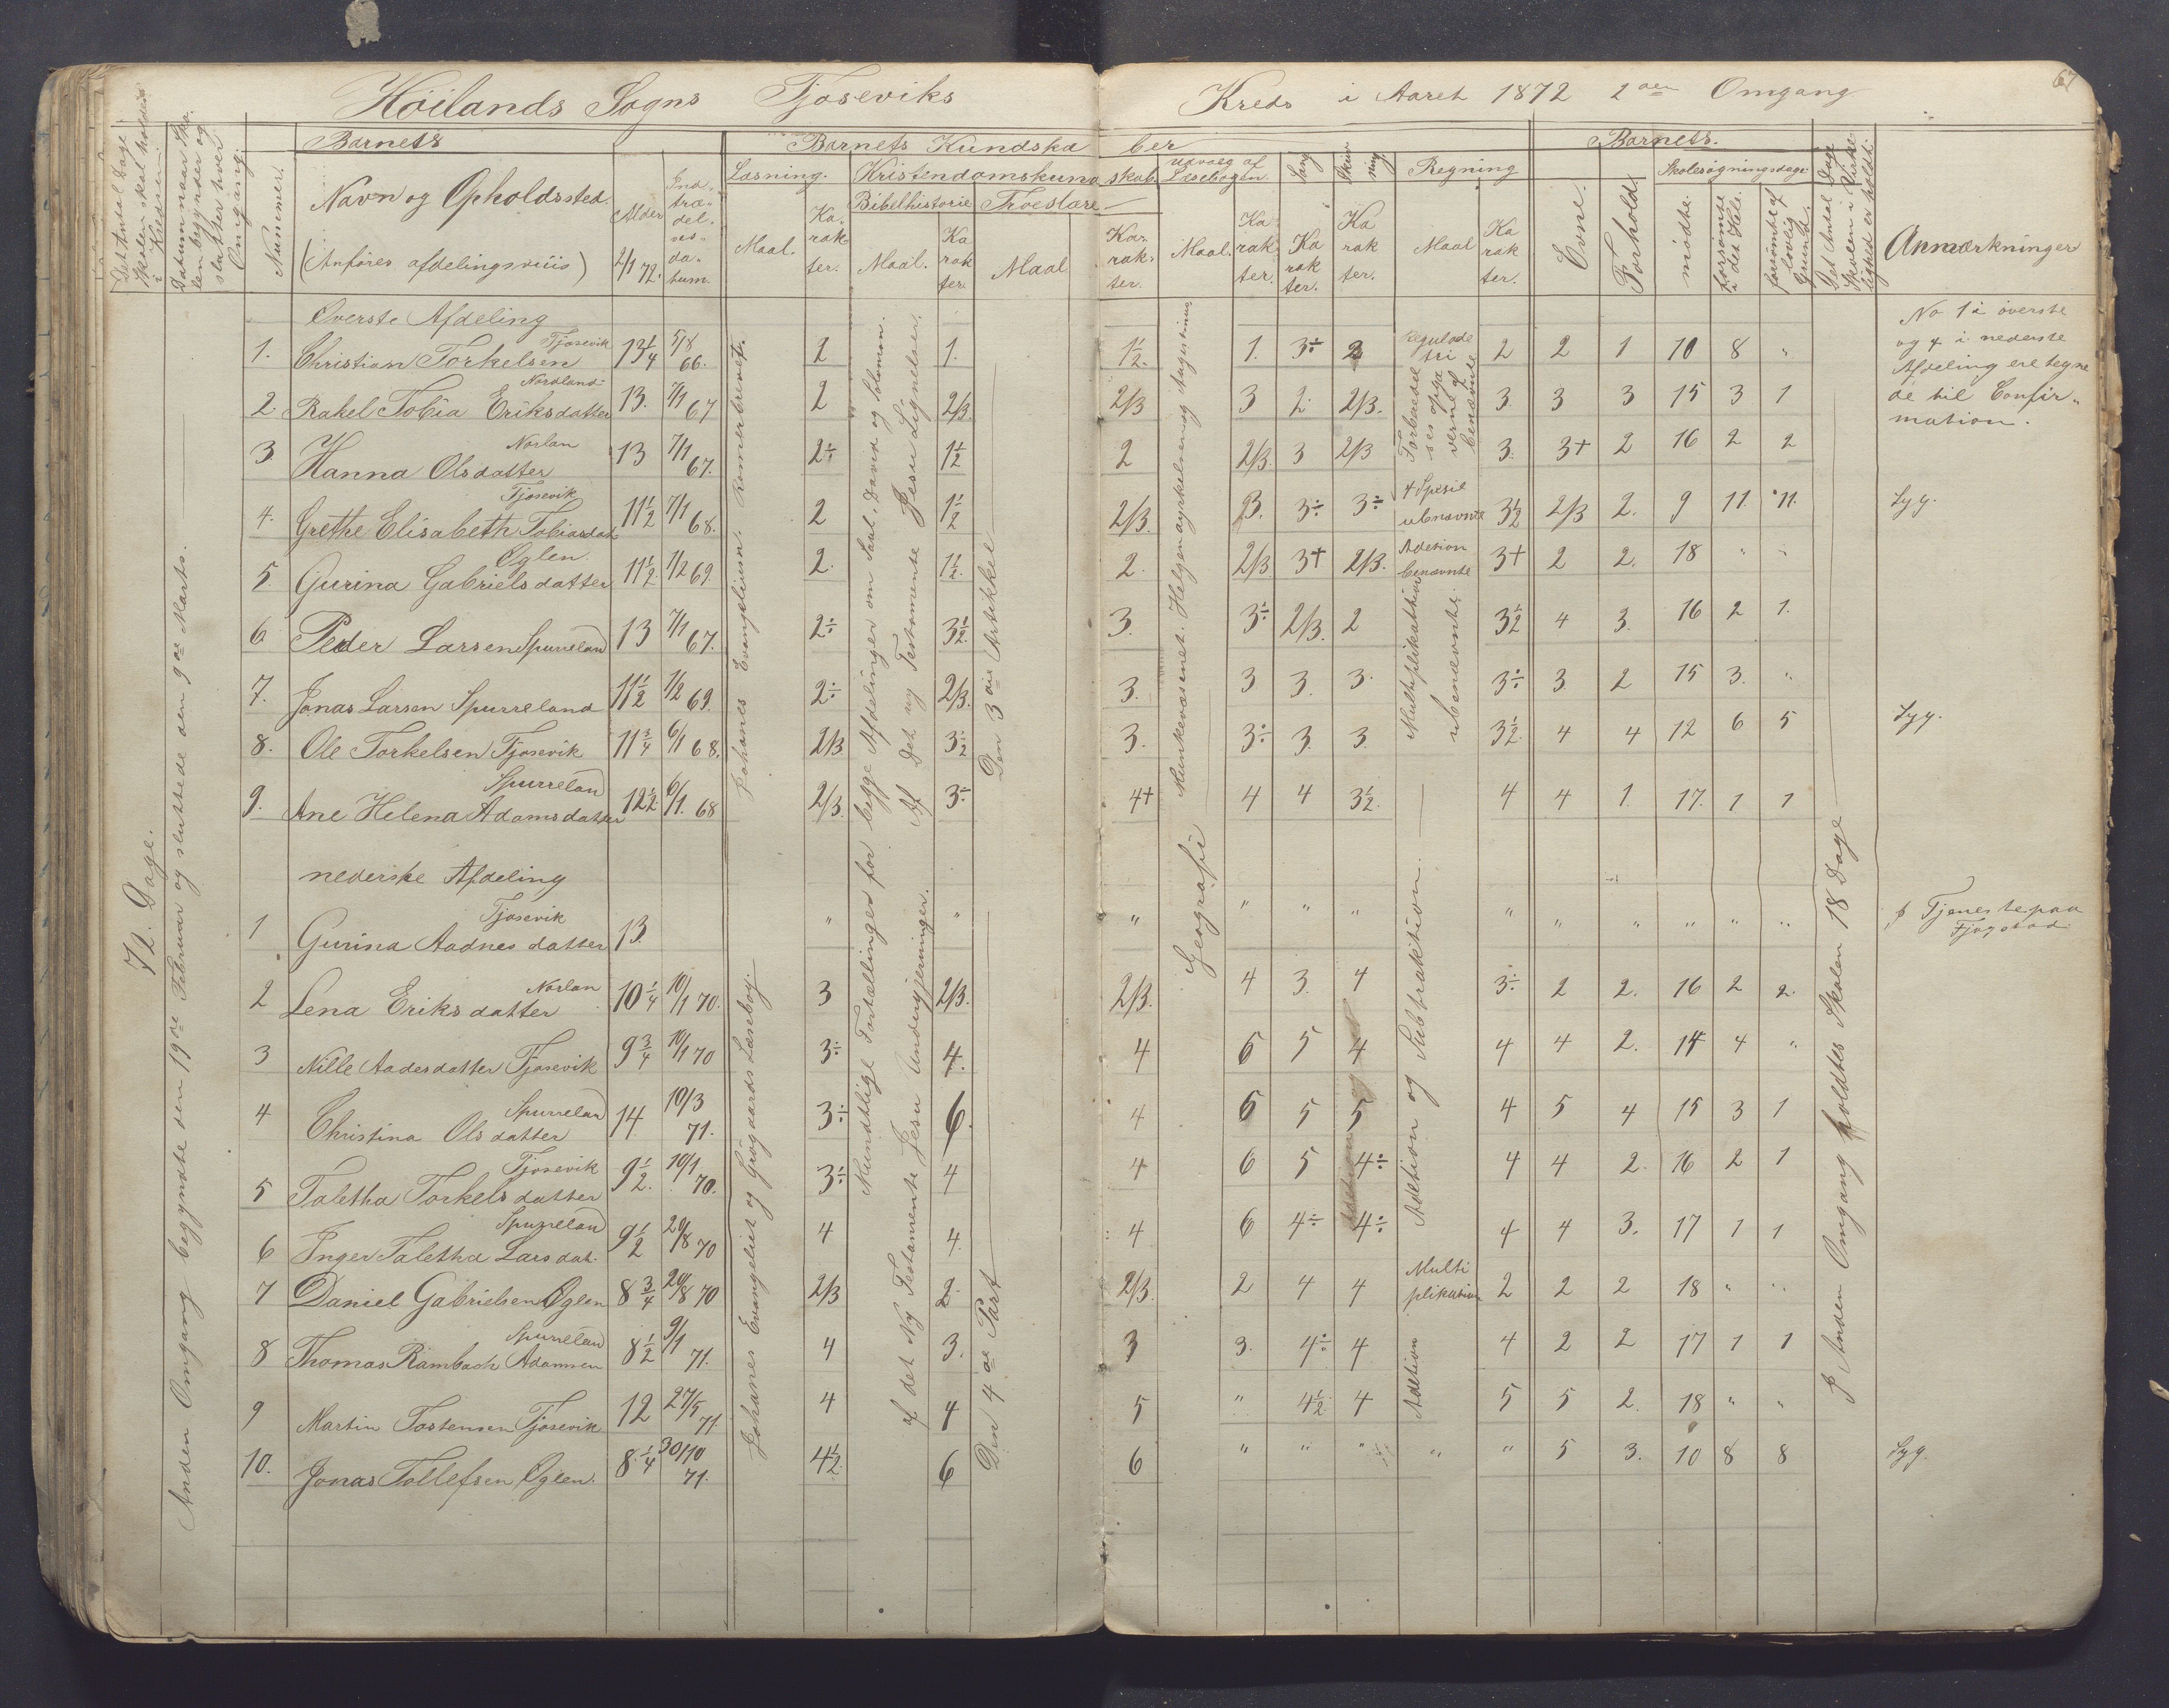 Höilands Sogns Tjoseviks Kreds i Aaret 1872 2den Omgang
67
Det Antal Dage Skolen skal holdes i Kredsen
Datum naar Skolen begynder og slutter hver Omgang.
Nummer.
Barnets
Navn og Opholdssted.
(Anføres afdelingsviis)
Alder 2/1 72.
Indtrædelsesdatum.
Barnets Kundskaber
Læsning.
Maal.
Karakter.
Kristendomskundskab
Bibelhistorie
Maal.
Karakter
Troeslære
Maal
Karakter.
Udvalg af Læsebogen
Maal.
Karakter.
Sang
Karakter.
Skrivning
Karakter.
Regning
Maal
Karakter.
Barnets.
Evne.
Forhold
Skolesøgningsdage
mødte.
forsømte i det Hele.
forsømte af lovlig Grund.
Det Antal Dage Skolen i Virkelighed er holdt.
Anmærkninger
72. Dage.
Anden Omgang begyndte den 19de Februar og sluttede den 9de Marts.
Øverste Afdeling
1. Christian Torkelsen Tjosevik 13 1/4 5/8 66. 2 1. 1 1/2. 1. 3÷ 2 2 2 1 10 8 "
2. Rakel Tobia Eriksdatter Nordland 13. 7/1 67 2 2/3. 2/3 3 2 2/3. 3. 3 3 15 3 1
3 Hanna Olsdatter Norlan 13 7/1 67. 2÷ 1 1/2 2 2/3. 3 2/3 3. 3+ 2 16 2 2
4. Grethe Elisabeth Tobiasdat Tjosevik 11 1/2 7/1 68. 2 1 1/2 2/3. 3. 3÷ 3÷ 3 1/2 2/3 2. 9 11. 11. Syg.
5 Gurina Gabrielsdatter Oglen 11 1/2. 1/2 69. 2. 1 1/2. 2. 2/3. 3+ 2/3. 3+ 2 2. 18 " "
6 Peder Larsen Spurreland 13 7/1 67. 2÷ 3 1/2. 3. 3÷ 2/3. 2 3 1/2 4 3. 16 2 1.
7. Jonas Larsen Spurreland 11 1/2 1/2 69. 2÷ 2/3. 3. 3 3. 3. 3÷ 3 2 15 3. "
8. Ole Torkelsen Tjosevik 11 3/4 6/1 68. 2/3 3 1/2 3. 3÷ 3. 3. 3 1/2. 4 4 12 6 5 Syg.
9. Ane Helena Adamsdatter Spurreland 12 1/2. 6/1. 68 2/3. 3÷ 4+ 4 4 3 1/2. 4 4 1. 17. 1 1
nederste Afdeling
1 Gurina Aadnesdatter Tjosevik 13. " " " " " " " " " " " "
2 Lena Eriksdatter Norlan 10 1/4 10/1 70. 3 2/3. 2/3. 4 3. 4 3÷ 2 2. 16 2 2.
3 Nille Aadesdatter Tjosevik 9 3/4 10/1 70 3÷ 4. 4 6 5 4 4 4 2. 14 4 "
4 Christina Olsdatter Spurreland 14 10/3 71. 3÷ 6. 4 6 5 5 4 5 4 15 3 1
5 Taletha Torkelsdatter Tjosevik 9 1/2. 10/1 70. 3÷ 4 4 6 5 4÷ 4 4 2. 16 2 1
6 Inger Taletha Larsdat. Spurreland 9 1/2 20/8 70 4 4. 4 6 4÷ 4÷ 4 4 3. 17 1 1
7 Daniel Gabrielsen Oglen 8 3/4 20/8 70 2/3 2 2/3. 2 4 4 2 2 2 18 " "
8 Thomas Rambach Adamsen Spurreland 8 1/2 9/1 71. 4 3. 3 3. 4÷ 4 4 2 2 17 1 1
9 Martin Tostensen Tjosevik 12 27/5 71 4 4 5 " 4 1/2 4 5 5 2. 18 " "
10. Jonas Tollefsen Oglen. 8 1/4 30/10 71. 4 1/2. 6 6 " " " " " 5 3. 10 8 8 Syg.
Johanes Evangelium. Romerbrevet.
Johanes Evangeliet og Grögaards Læsebog.
Mundtlige Fortællinger for begge Afdelinger om Saul, David og Salomon.
Af Det ny Testamente Jesu Lignelser.
af det Ny Testamente Jesu Undergjerninger.
Den 3die Artikkel
Den 4de Part
Munkevæsenet. Helgenayrkelsen og Augustinus
Geografi
Regulade tri
Forberedelses opga verne af benævnte
4 Spesie ubenævnte
Adetion benævnte
Multiplikation ubenævnte.
Adetion og Subtraktion.
Multiplikation
Adetion
I Anden Omgang holdtes Skolen 18 Dage
No 1 i øverste og 4 i nederste Afdeling ere tegnede til Confirmation.
I Tjeneste paa Fjogstad